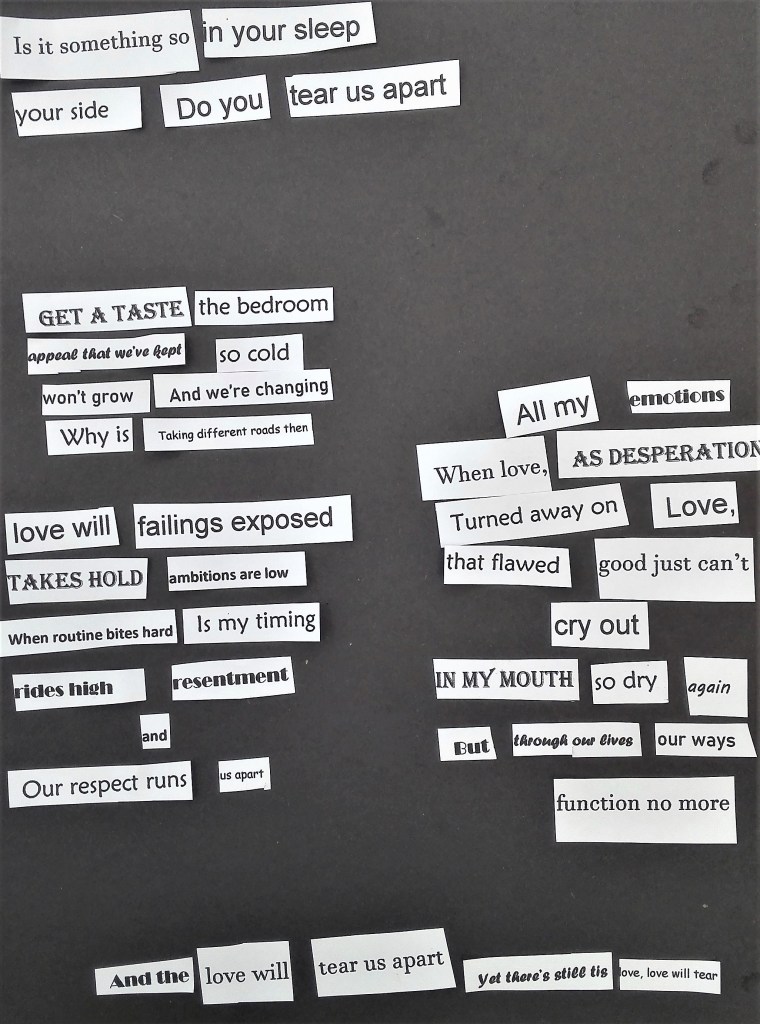 Is it something so in your sleep
your side Do you tear us apart
GET A TASTE the bedroom
appeal that we've kept so cold
won't grow And we're changing
Why is Taking different roads then
love will failings exposed
TAKES HOLD ambitions are low
When routine bites hard Is my timing
rides high resentment
and
Our respect runs us apart
All my emotions
When love, AS DESPERATION
Turned away on Love,
that flawed good just can't
cry out
IN MY MOUTH so dry again
But through our lives our ways
function no more
And the love will tear us apart Yet there's still tis love, love will tear